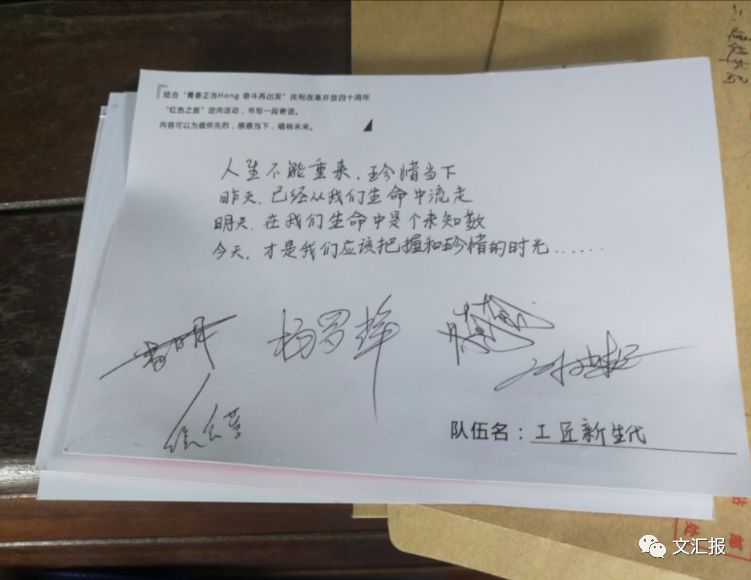 结合“青春正当Hong 奋斗再出发”庆祝改革开放四十周年
“红色之旅”定向活动，书写一段寄语。
内容可以为缅怀先烈，感慨当下，唱响未来。
人生不能重来，珍惜当下
昨天，已经从我们生命中流走
明天，在我们生命中是个未知数
今天，才是我们应该把握和珍惜的时光……
队伍名：工匠新生代
文汇报